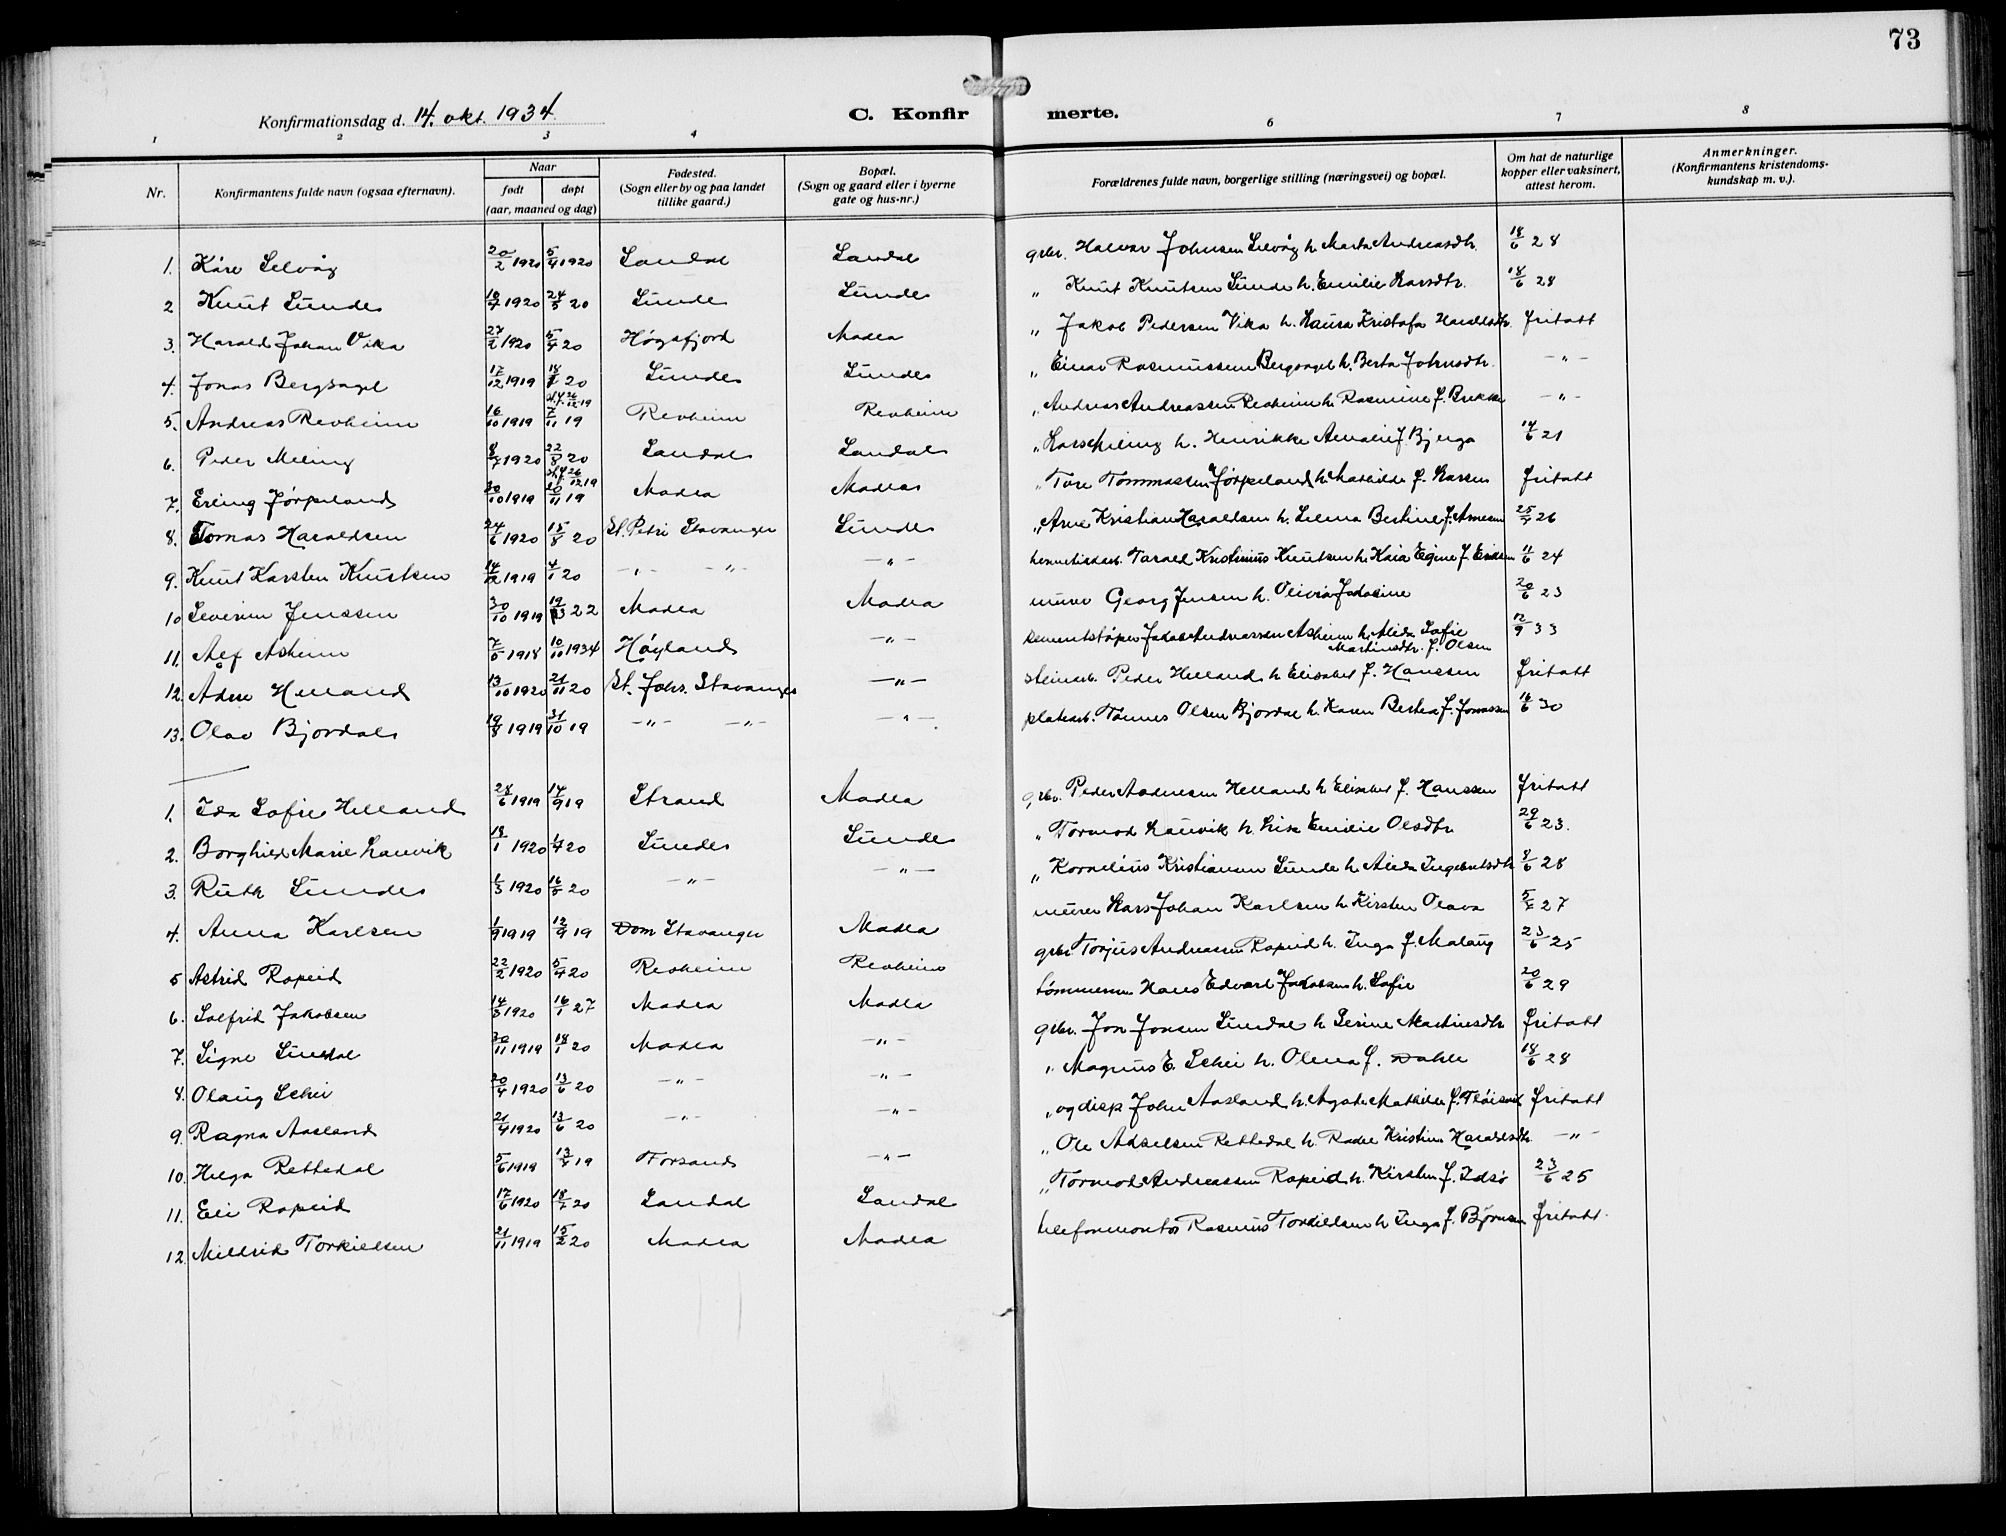 73
Konfirmationsdag d. 14. okt. 1934.
C. Konfir merte.
1 2 3 4 5 6 7 8
Nr. Konfirmantens fulde navn (ogsaa efternavn). Naar født døpt (aar, maaned og dag) Fødested. (Sogn eller by og paa landet tillike gaard.) Bopæl. (Sogn og gaard eller i byerne gate og hus-nr.) Forældrenes fulde navn, borgerlige stilling (næringsvei) og bopæl. Om hat de naturlige kopper eller vaksinert, attest herom. Anmerkninger. (Konfirmantens kristendoms-kundskap m. v.).
1. Kåre Selvåg 20/2 1920 5/4 1920 Sandal Sandal grbr. Halvor Johnsen Selvåg h. Marta Andreasdtr. 18/6 28
2 Knut Sunde 10/4 1920 24/5 20 Sunde Sunde " Knut Knutsen Sunde h. Emilie Larsdtr. 18/6 28
3. Harald Johan Vika 27/2 1920 5/4 20 Høgsfjord Madla " Jakob Pedersen Vika h. Laura Kristofa Haraldsdtr. fritatt
4. Jonas Bergsagel 17/12 1919 18/4 20 Sunde Sunde " Einar Rasmussen Bergsagel h. Berta Johnsdtr. -"-
5. Andreas Revheim 16/10 1919 7/11 19 26/12 19 Revheim Revheim " Andreas Andreassen Revheim h. Rasmine f. Brekke -"-
6. Peder Meling 8/7 1920 22/8 20 Sandal Sandal " Lars Meling h. Henrikke Amalie f. Bjerga 14/6 21
7. Erling Jørpeland 30/10 1919 30/11 19 26/12 19 Madla Madla " Tore Tommassen Jørpeland h. Mathilde f. Larsen fritatt
8. Tomas Haraldsen 24/6 1920 15/8 20 St. Petri Stavanger Sunde " Arne Kristian Haraldsen h. Selma Bertine f. Arnesen 25/4 26
9. Knut Karsten Knutsen 14/12 1919 4/1 20 -"- -"- -"- hermetikkarb. Tarald Kristinius Knutsen h. Kaia Egine f. Eriksen 11/6 24
10 Severin Jenssen 30/10 1919 19/3 22 Madla Madla murer Georg Jensen h. Olivia Jakobine 20/6 23
11. Alf Asheim 7/5 1918 10/10 1934 Høyland -"- sementstøper Jakob Andreassen Asheim h. Alida Sofie Martinsdtr. f. Olsen 12/9 33
12. Adne Helland 13/10 1920 21/11 20 St. Johs. Stavanger -"- steinarb. Peder Helland h Elisabet f. Hanssen fritatt
13. Olav Bjordal 19/8 1919 31/10 19 -"- -"- -"- platearb. Tønnes Olsen Bjordal h. Karen Bertea f. Jonassen 16/6 30
1. Ida Sofie Helland 28/6 1919 14/9 19 Strand Madla grbr. Peder Andreassen Helland h Elisabet f. Hanssen fritatt
2. Borghild Marie Lauvik 18/1 1920 1/4 20 Sunde Sunde " Tormod Lauvik h Lisa Emilie Olsdtr 29/6 23.
3. Ruth Sunde 1/3 1920 16/5 20 -"- -"- " Kornelius Kristiansen Sunde h Alida Ingebretsdtr 8/6 28
4. Anna Karlsen 1/9 1919 12/9 19 Dom Stavanger Madla murer Lars Johan Karlsen h Kirsten Olava 5/7 27
5 Astrid Rapeid 22/2 1920 5/4 20 Revheim Revheim grbr. Torjus Andreassen Rapeid h. Inga f. Malaug 23/6 25
6. Solfrid Jakobsen 14/3 1920 16/1 27 Madla Madla tømmerm. Hans Edvard Jakobsen h. Sofie 20/6 29
7. Signe Lindal 30/11 1919 18/1 20 Madla -"- grbr. Jon Jonsen Lindal h Serine Martinsdtr fritatt
8. Olaug Schei 20/4 1920 13/6 20 -"- -"- " Magnus E. Schei h. Olena f. Dahle 18/6 28
9. Ragna Aasland 21/4 1920 13/6 20 -"- -"- " og disp John Aasland h. Agate Mathilde f. fritatt
10. Helga Rettedal 5/6 1919 13/7 19 Forsand -"- " Ole Adselsen Rettedal h Kristine Haraldsdtr. -"-
11. Eli Rapeid 17/6 1920 18/7 20 Sandal Sandal " Tormod Andreassen Rapeid h. Kirsten f. Idsø 23/6 25
12. Mildrid Torkildsen 21/11 1919 15/2 20 Madla Madla telefonmontør Rasmus Torkildsen h Inga f. Bjørnsen fritatt